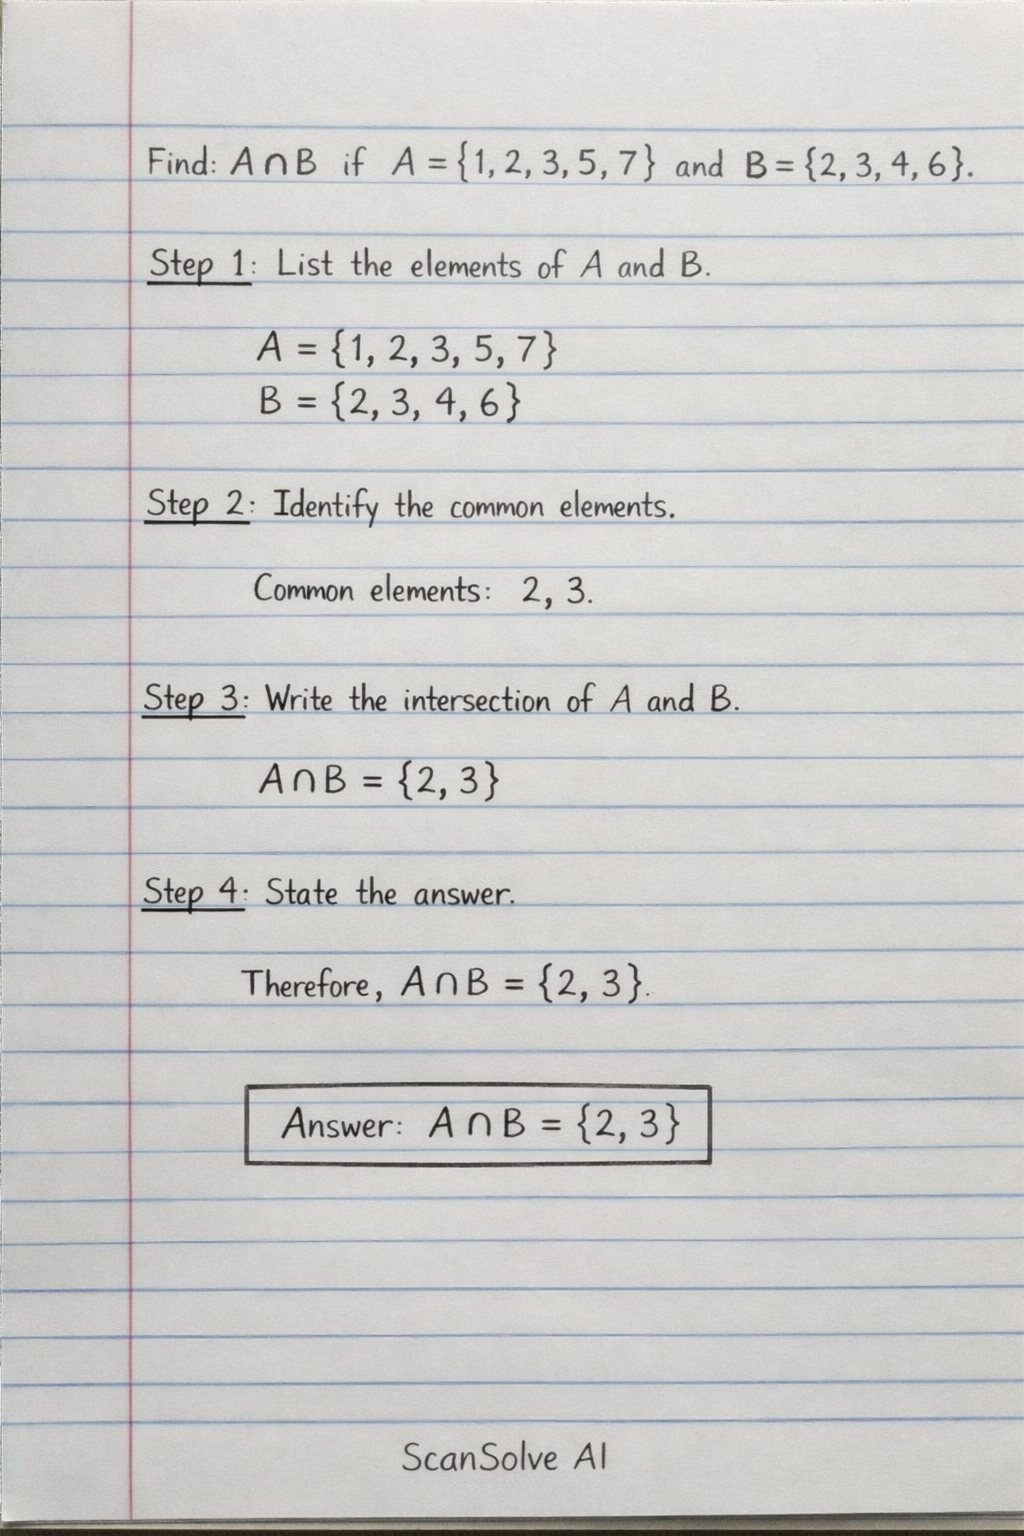 Find: A ∩ B if A = {1, 2, 3, 5, 7} and B = {2, 3, 4, 6}.
Step 1: List the elements of A and B.
A = {1, 2, 3, 5, 7}
B = {2, 3, 4, 6}
Step 2: Identify the common elements.
Common elements: 2, 3.
Step 3: Write the intersection of A and B.
A ∩ B = {2, 3}
Step 4: State the answer.
Therefore, A ∩ B = {2, 3}.
Answer: A ∩ B = {2, 3}
ScanSolve AI